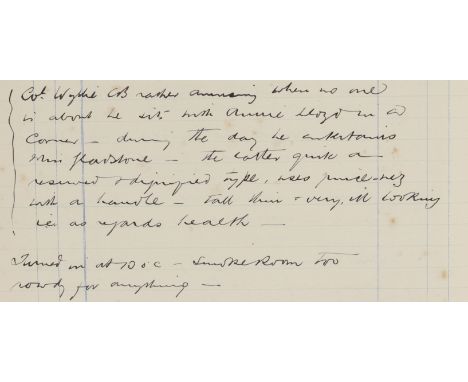 Col. Wyllie CB rather amusing when no one
is about he sits with Annie Lloyd in a
corner – during the day he entertains
Miss Gladstone – the latter quite a
reserved & dignified type, uses pince-nez
with a handle – tall thin & very ill looking
i.e. as regards health –
Turned in at 10 o'c – Smoke Room too
rowdy for anything –